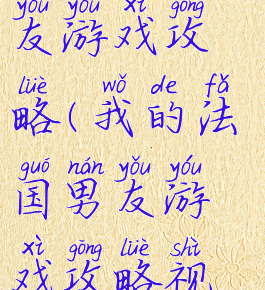 yǒu yóu xì gōng
友游戏攻
lüè wǒ de fǎ
略(我的法
guó nán yǒu yóu
国男友游
xì gōng lüè shì
戏攻略视